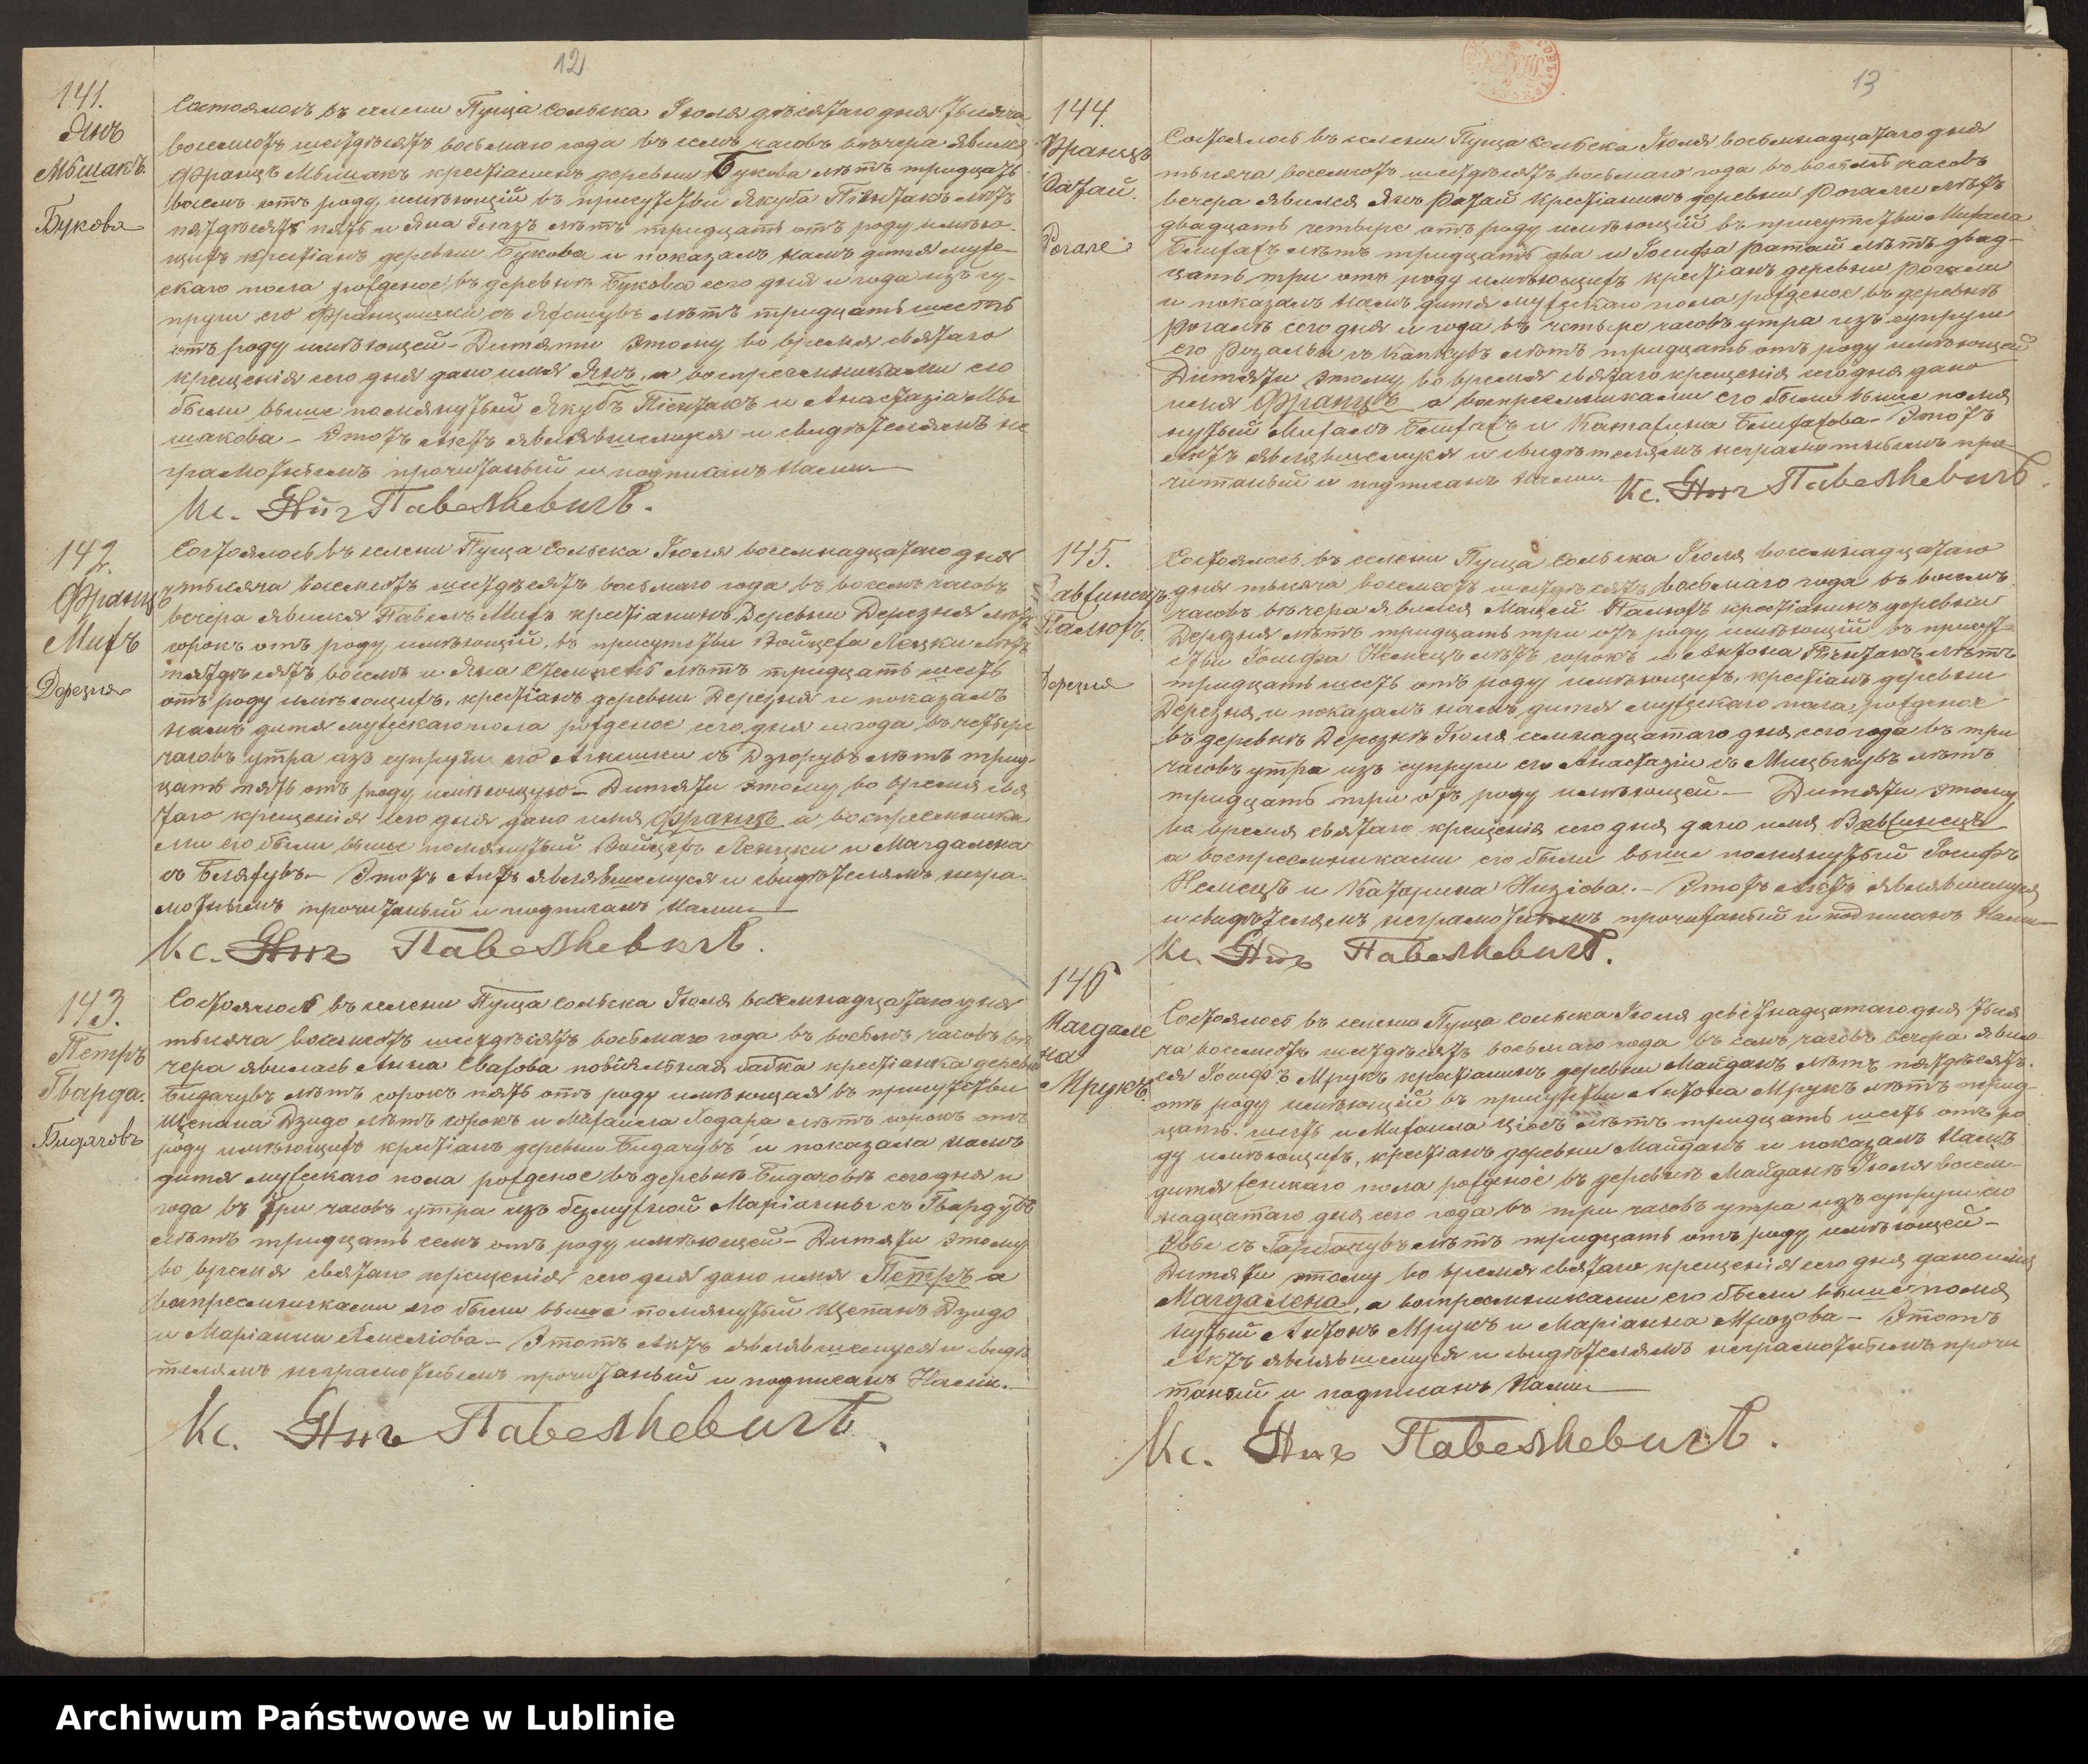 12
141.
Янъ
Мысшакъ.
Букова
Состоялось въ селени Пуща Сольска Іюля десятаго дня тысяча
восемсотъ шестдесятъ восьмаго года въ семь часовъ вечера явился
Францъ крестіанинъ деревни Букова лѣтъ тридцать
восемъ отъ роду имѣющій въ присутстви Якуба Піентакъ лѣтъ
пятдесятъ пять и Яна лѣтъ тридцать отъ роду имѣю-
щихъ крестіанъ деревни Букова и показалъ намъ дитя муже-
скаго пола рожденое въ деревнѣ Букова сего дня и года изъ су-
пруги его Францишки съ лѣтъ тридцать шесть
отъ роду имѣющей - Дитяти этому во время святаго
крещенія сего дня дано имя Янъ, а воспреемниками его
были выше помянутый Якубъ Піентакъ и Анастазіа Мы
шакова - Этотъ Актъ являвшемуся и свидѣтелямъ не
грамотнымъ прочитаный и подписанъ Нами
Кс. Павелкевичъ.
142.
Францъ
Михъ
Дерезня
Состоялось въ селени Пуща Сольска Іюля восемнадцатаго дня
тысяча восемсотъ шестдесятъ восьмаго года въ восемь часовъ
вечера явился Павелъ Михъ крестіанинъ Деревни Дерезня лѣтъ
сорокъ отъ роду имѣющій въ присутстви Войцеха лѣтъ
пятдесятъ восемъ и Яна лѣтъ тридцать шесть
отъ роду имѣющихъ, крестіанъ деревни Дерезня и показалъ
намъ дитя мужескаго пола рожденое сего дня и года въ четыре
часовъ утра изъ супруги его Агнешки съ Дзюрувъ лѣтъ трид-
цать пять отъ роду имѣющую - Дитяти этому во время свя
таго крещенія сего дня дано имя Францъ а воспреемника
ми его были выше помянутый Войцехъ и Магдалена
съ - Этотъ Актъ являвшемуся и свидѣтелямъ негра-
мотнымъ прочитаный и подписанъ Нами
Кс. Павелкевичъ.
143.
Петръ
Гварда.
Бидачовъ
Состоялось въ селени Пуща Сольска Іюля восемнадцатаго дня
тысяча восемсотъ шестдесятъ восьмаго года въ восьмъ часовъ ве
чера явилась Анна повивальная бабка крестіанка деревни
Бидачувъ лѣтъ сорокъ пять отъ роду имѣющая въ присутстви
Щепана Дзидо лѣтъ сорокъ и Михаила лѣтъ сорокъ отъ
роду имѣющихъ крестіанъ деревни Бидачувъ и показала намъ
дитя мужескаго пола рожденое въ деревнѣ Бидачовѣ сего дня и
года въ три часовъ утра изъ безмужной Маріанны съ Гвардувъ
лѣтъ тридцать семъ отъ роду имѣющей - Дитяти этому
во время святаго крещенія сего дня дано имя Петръ а
воспреемниками его были выше помянутый Щепанъ Дзидо
и Маріанна - Этотъ Актъ являвшемуся и свидѣ
телямъ неграмотнымъ прочитаный и подписанъ Нами.
Кс. Павелкевичъ.
13
144.
Францъ
Ратай.
Рогале
Состоялось въ селени Пуща Сольска Іюля восьмнадцатаго дня
тысяча восемсотъ шестдесятъ восьмаго года въ восьмъ часовъ
вечера явился Янъ Ратай крестіанинъ деревни Рогали лѣтъ
двадцать четыре отъ роду имѣющій въ присутстви Михала
лѣтъ тридцать два и Іосифа Ратай лѣтъ двад-
цать три отъ роду имѣющихъ крестіанъ деревни Рогали
и показалъ намъ дитя мужескаго пола рожденое въ деревнѣ
Рогаль сего дня и года въ четыре часовъ утра изъ супруги
его Розальи съ лѣтъ тридцать отъ роду имѣющей
Дитяти этому во время святаго крещенія сего дня дано
имя Францъ а воспреемниками его были выше помя
нутый Михалъ и Катажина - Этотъ
Актъ являвшемуся и свидѣтелямъ неграмотнымъ про-
читаный и подписанъ Нами.
Кс. Павелкевичъ.
145.
Вавжинецъ
Палюхъ.
Дерезня
Состоялось въ селени Пуща Сольска Іюля восемнадцатаго
дня тысяча восемсотъ шестдесятъ восьмаго года въ восемъ
часовъ вечера явился Мацей Палюхъ крестіанинъ деревни
Дерезня лѣтъ тридцать три отъ роду имѣющій въ присут-
стви Іосифа Немецъ лѣтъ сорокъ и Антона Піентакъ лѣтъ
тридцать шесть отъ роду имѣющихъ, крестіанъ деревни
Дерезня, и показалъ намъ дитя мужескаго пола, рожденое
въ деревнѣ Дерезнѣ Іюля семнадцатаго дня сего года въ три
часовъ утра изъ супруги его Анастазіи съ лѣтъ
тридцать три отъ роду имѣющей - Дитяти этому
во время святаго крещенія сего дня дано имя Вавжинецъ
а воспреемниками его были выше помянутый Іосифъ
Немецъ и Катарина - Этотъ Актъ являвшемуся
и свидѣтелямъ неграмотнымъ прочитаный и подписанъ Нами
Кс. Павелкевичъ.
146
Магдале
на
Мрукъ.
Состоялось въ селени Пуща Сольска Іюля девятнадцатаго дня тыся
ча восемсотъ шестдесятъ восьмаго года въ семъ часовъ вечера явил
ся Іосифъ Мрукъ крестіанинъ деревни Майданъ лѣтъ пятдесятъ
отъ роду имѣющій въ присутстви Антона Мрукъ лѣтъ трид-
цать шесть и Михаила лѣтъ тридцать шесть отъ ро
ду имѣющихъ, крестіанъ деревни Майданъ и показалъ Намъ
дитя женскаго пола рожденое въ деревнѣ Майданѣ Іюля восем-
надцатаго дня сего года въ три часовъ утра изъ супруги его
Эвы съ Гарбачувъ лѣтъ тридцать отъ роду имѣющей -
Дитяти этому во время святаго крещенія сего дня дано имя
Магдалена, а воспреемниками его были выше помя
нутый Антонъ Мрукъ и Маріанна - Этотъ
Актъ являвшемуся и свидѣтелямъ неграмотнымъ прочи
таный и подписанъ Нами
Кс. Павелкевичъ.
Archiwum Państwowe w Lublinie